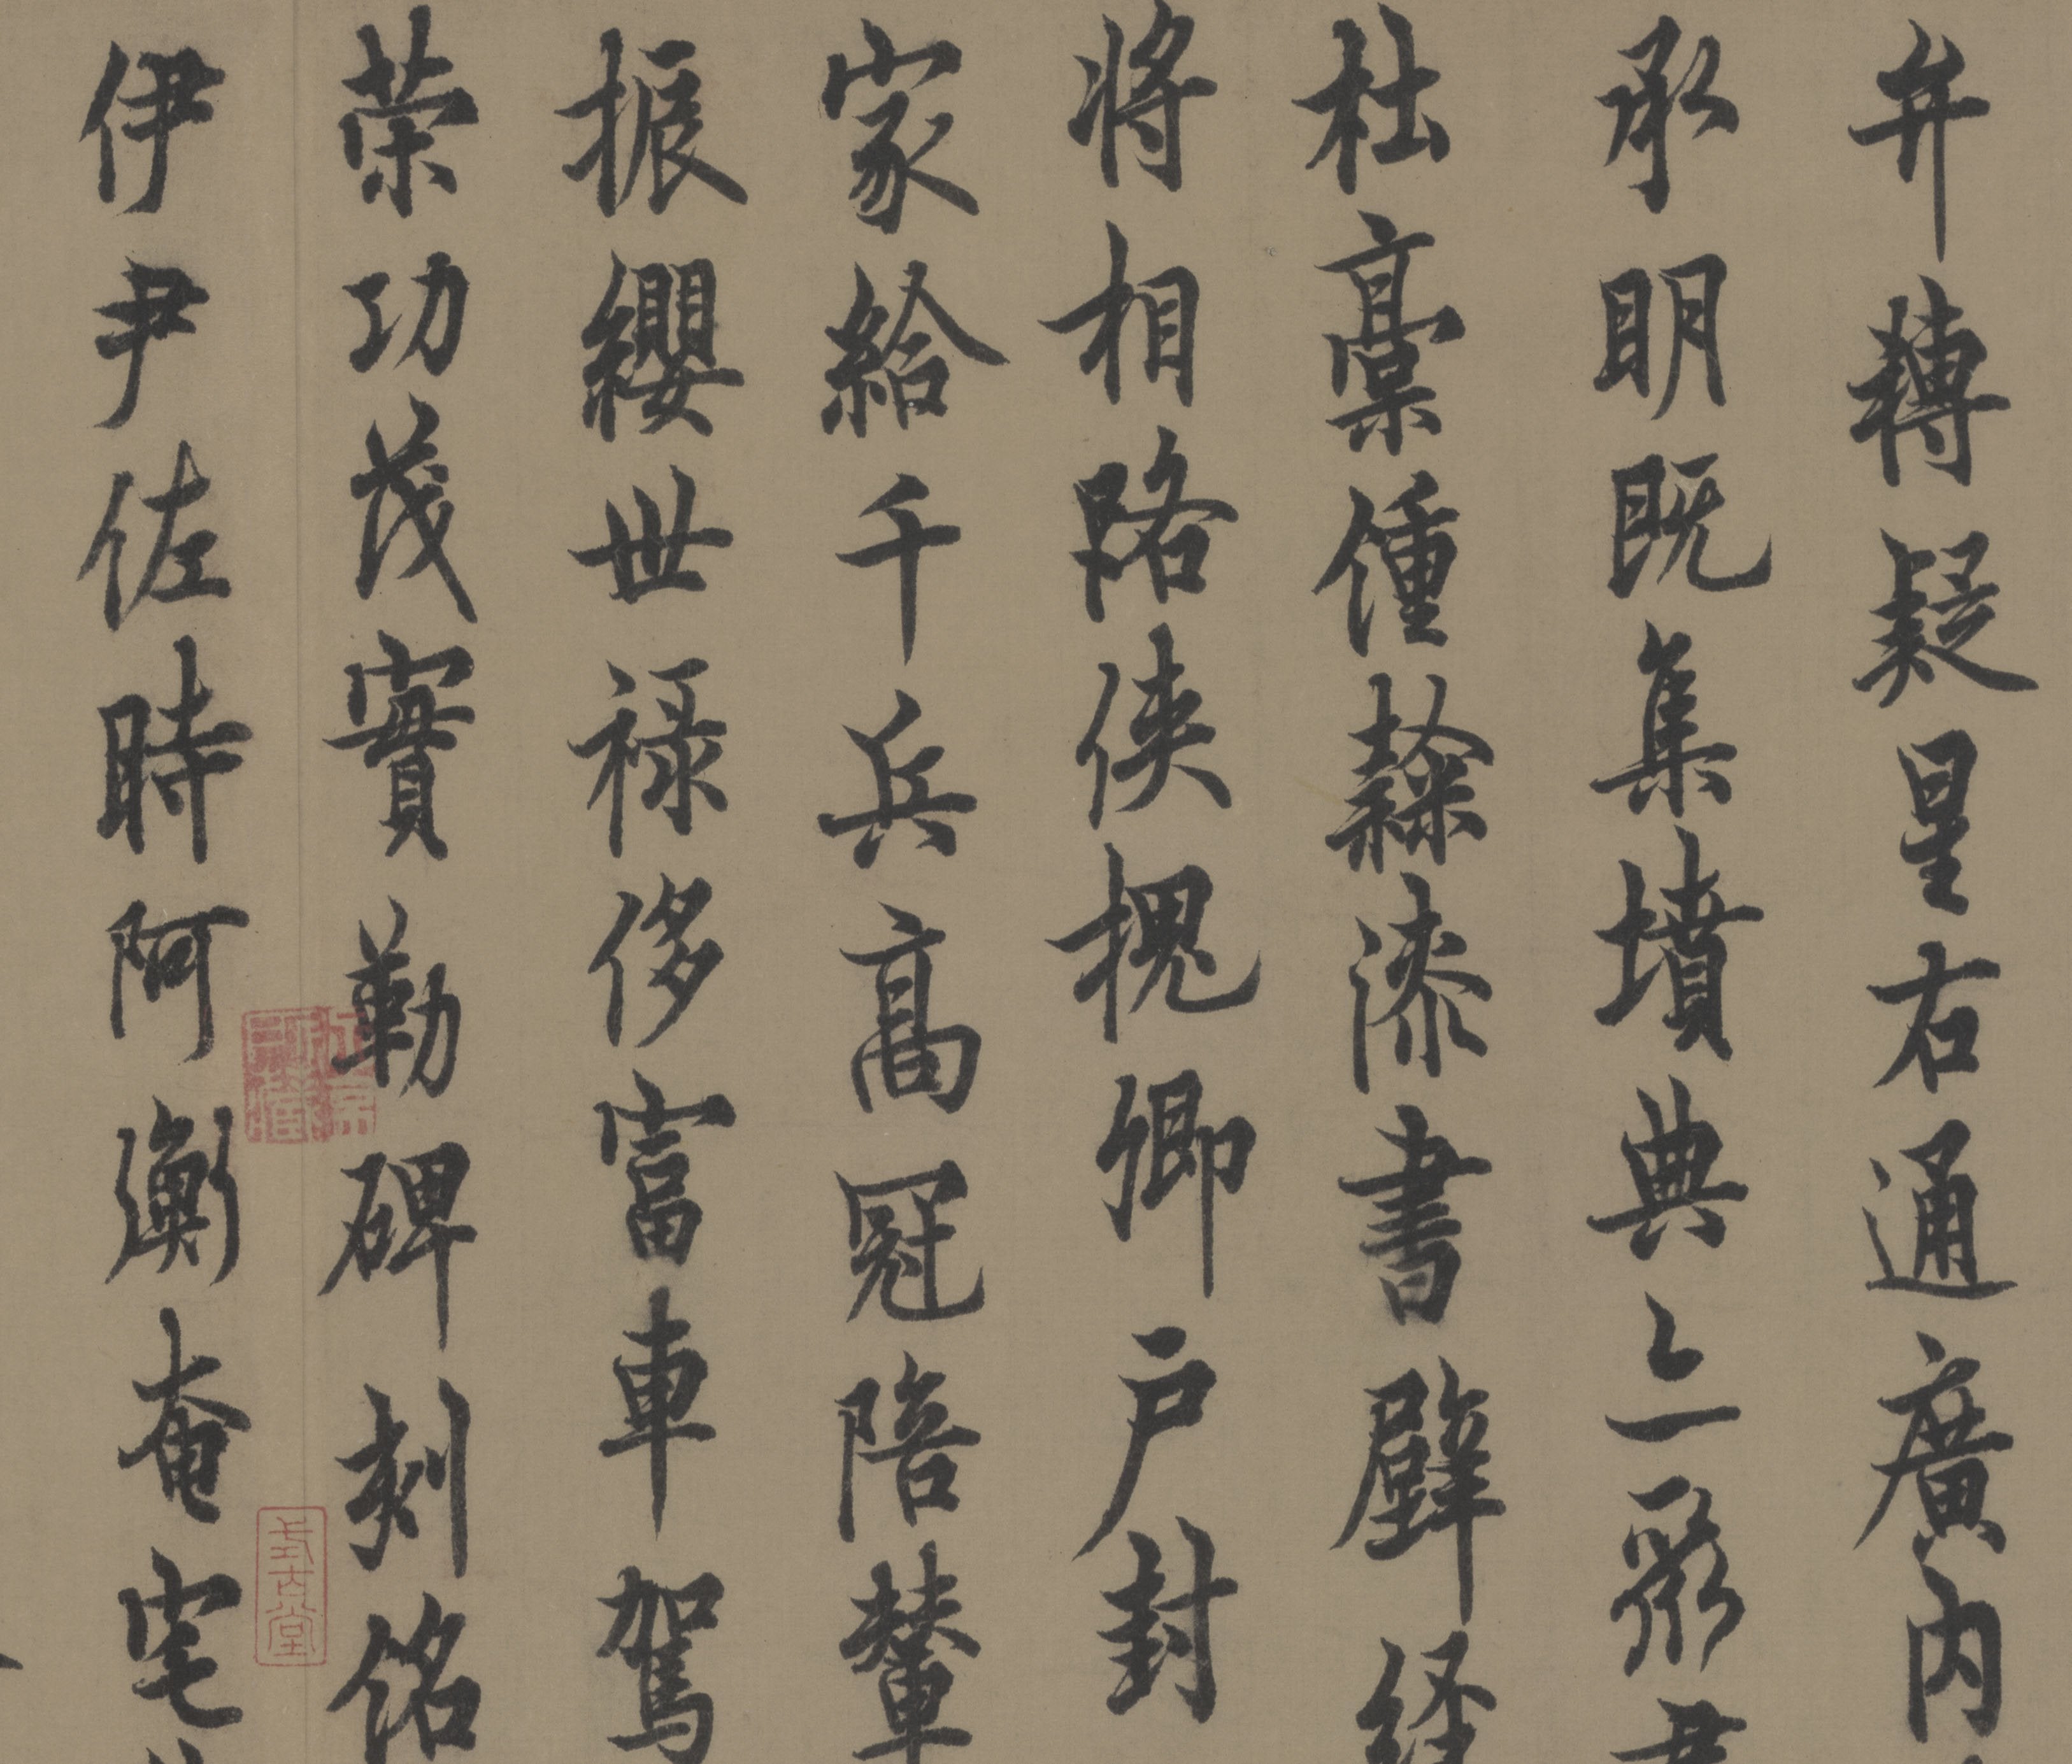 弁轉疑星右通廣內
承明既集墳典亦聚
杜稾鍾隸漆書壁経
將相路俠槐卿戶封
家給千兵高冠陪輦
振纓世祿侈富車駕
策功茂實勒碑刻銘
伊尹佐時阿衡奄宅
式古堂